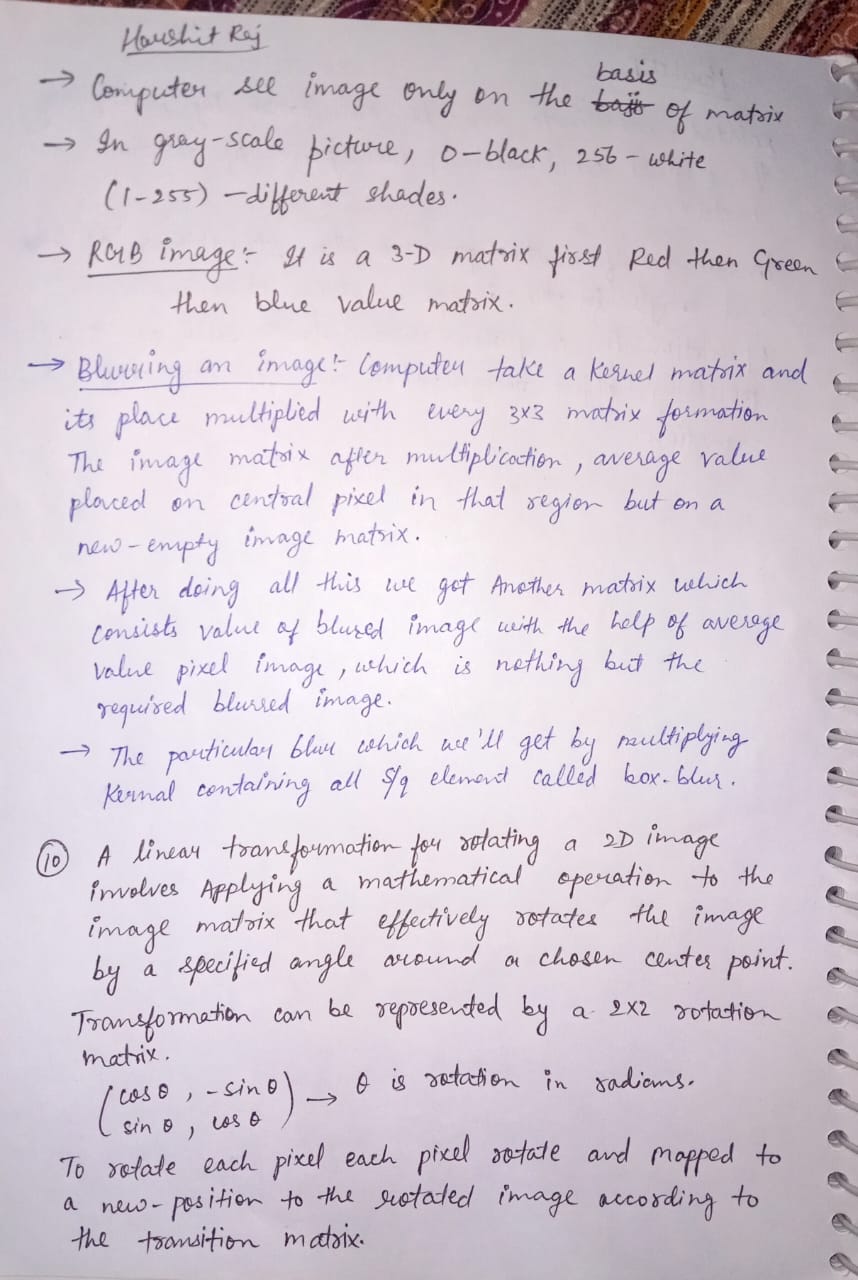 Harshit Raj
→ Computer see image only on the basis of matrix
→ In gray-scale picture, 0-black, 256-white
(1-255) -different shades.
→ RGB image:- It is a 3-D matrix first Red then Green
then blue value matrix.
→ Blurring an image:- Computer take a Kernel matrix and
its place multiplied with every 3x3 matrix formation
The image matrix after multiplication, average value
placed on central pixel in that region but on a
new-empty image matrix.
→ After doing all this we get Another matrix which
consists value of blured image with the help of average
value pixel image, which is nothing but the
required blurred image.
→ The particular blur which we'll get by multiplying
Kernal containing all element called box-blur.
10 A linear transformation for rotating a 2D image
involves Applying a mathematical operation to the
image matrix that effectively rotates the image
by a specified angle around a chosen center point.
Transformation can be represented by a 2x2 rotation
matrix.
(cosθ, -sinθ) → θ is rotation in radians.
sinθ, cosθ
To rotate each pixel each pixel rotate and mapped to
a new-position to the rotated image according to
the transition matrix.